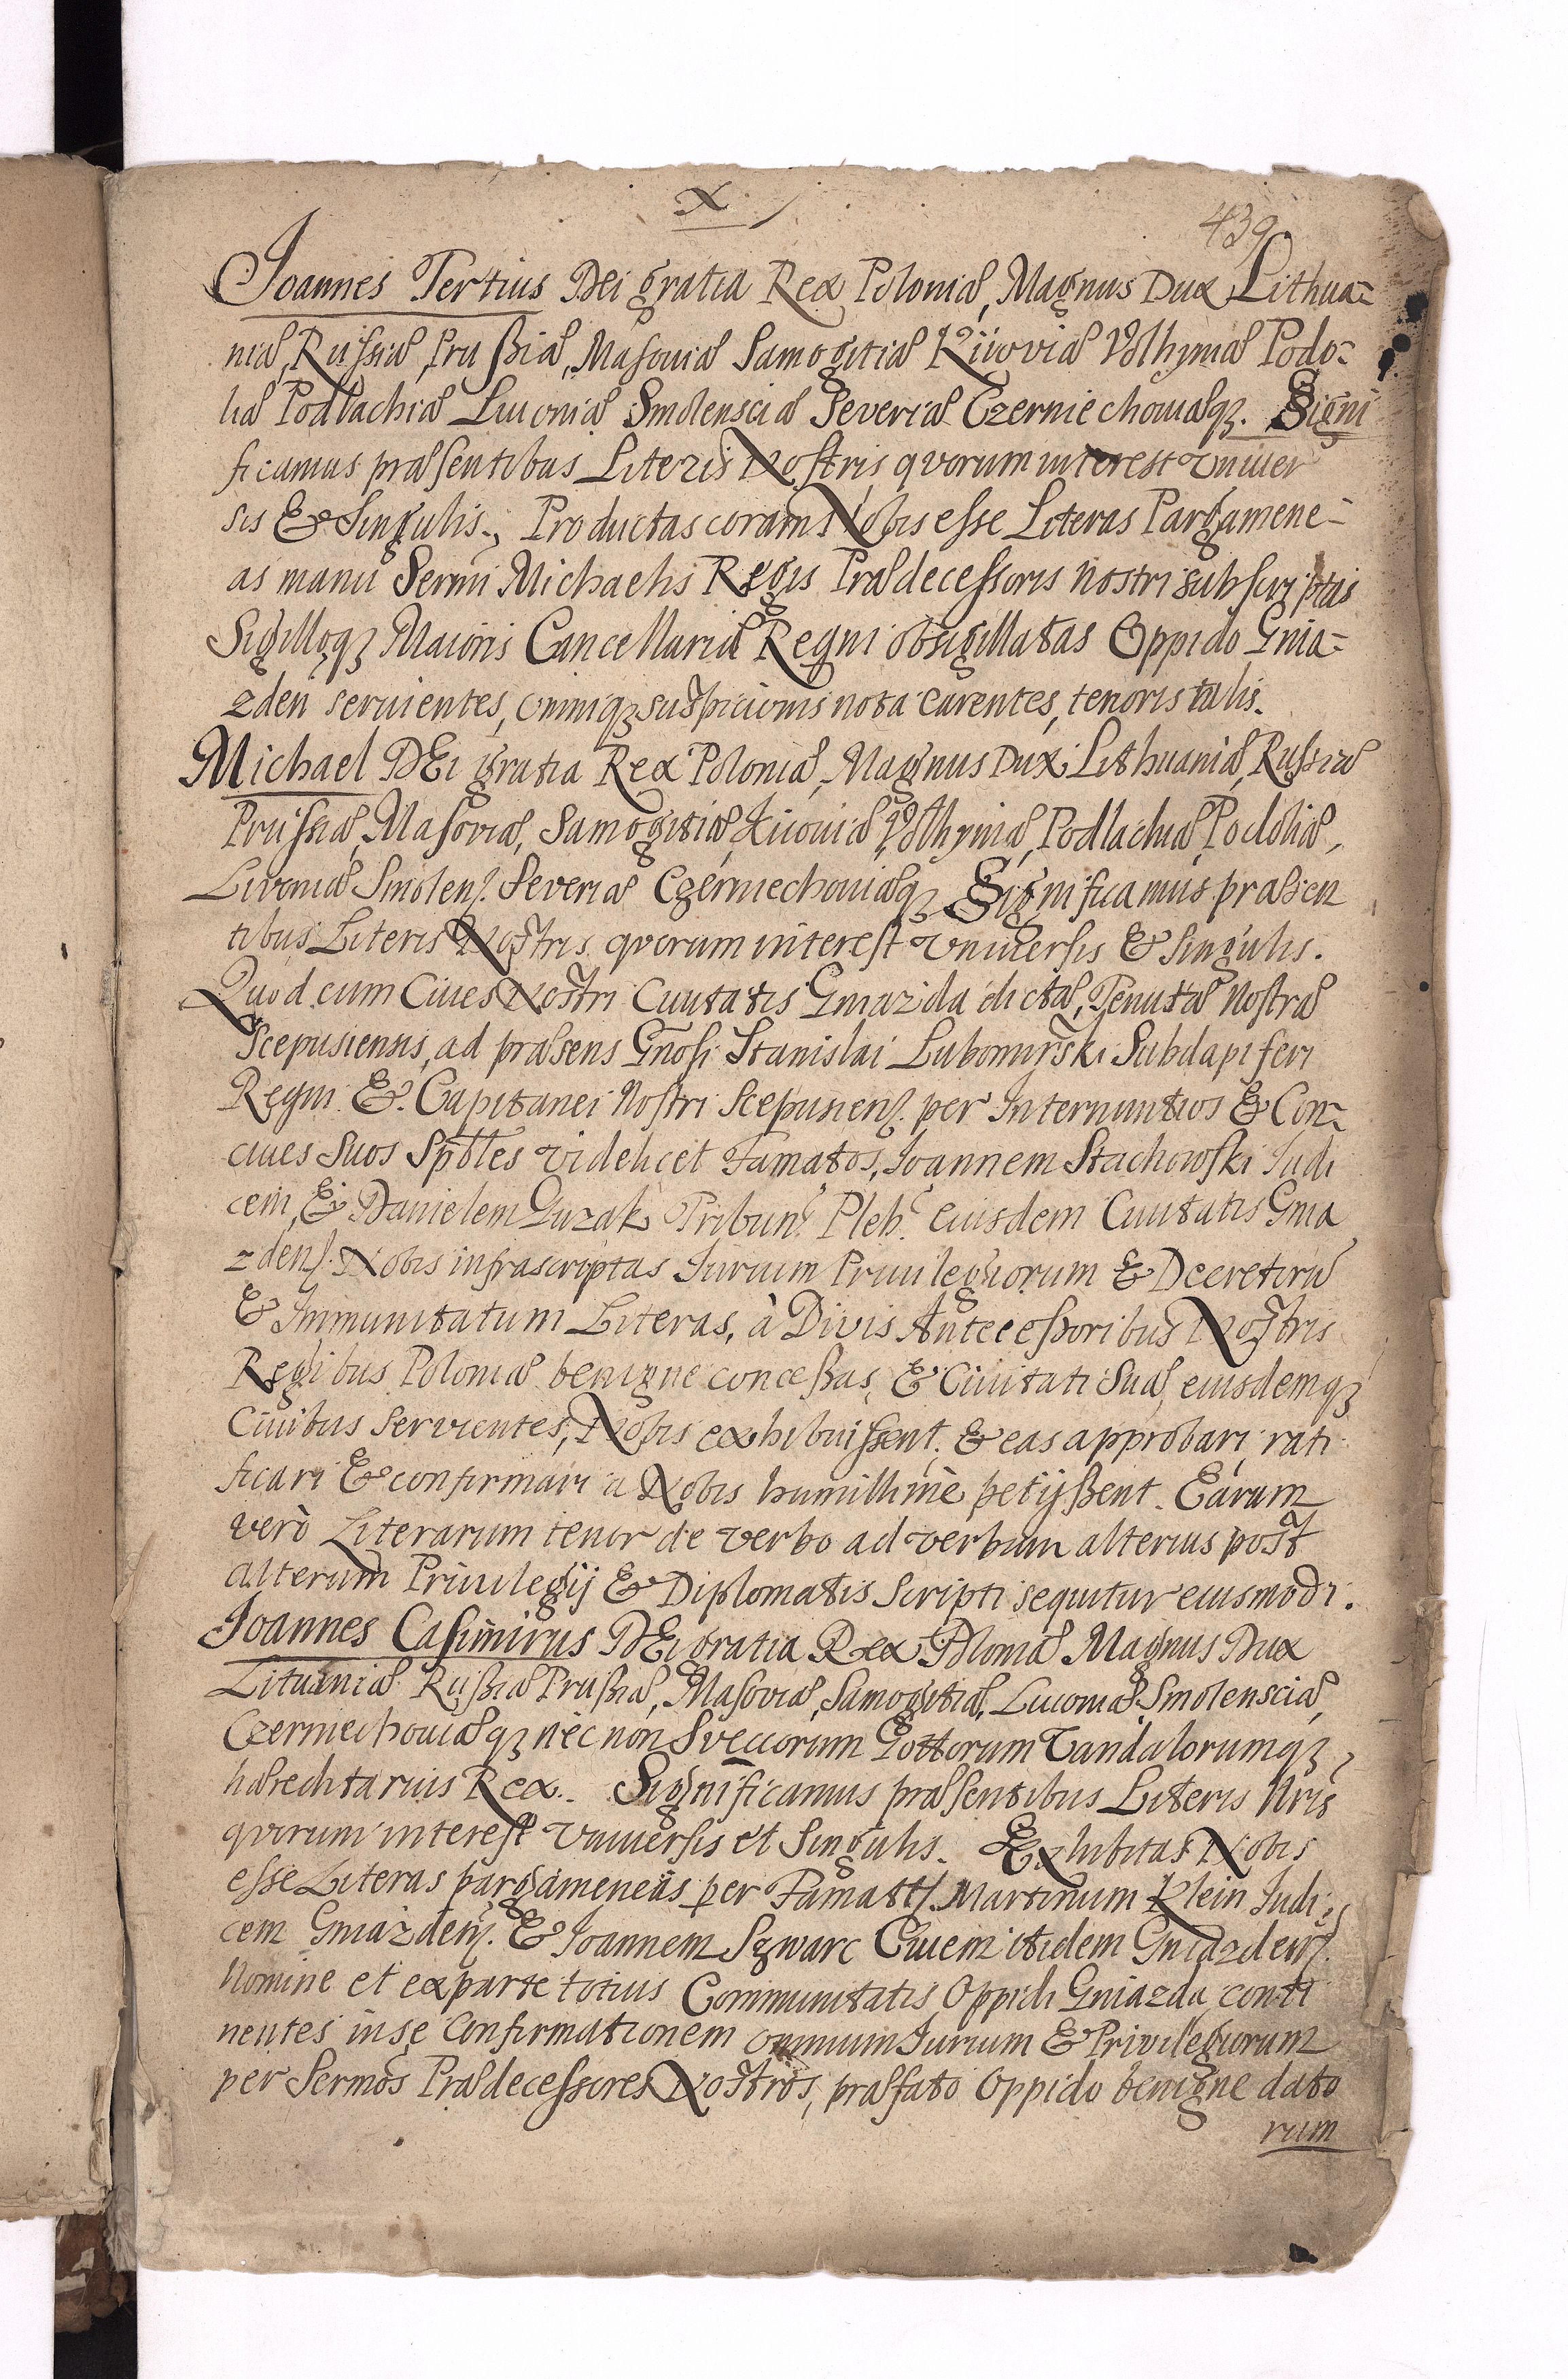 X
439
Joannes Tertius DEi gratia Rex Poloniæ, Magnus Dux Lithua=
niæ, Russiæ, Prußiæ, Masoviæ Samogitiæ Kijoviæ Volhyniæ Podo=
liæ Podlachiæ Livoniæ Smolensciæ Severiæ Czerniechoviæq3. Signi
ficamus præsentibus Literis Nostris quorum interest Vniuer
sis & Singulis., Productas coram Nobis esse Literas Pargamene-
as manu Sermi Michaelis Regis Prædecessoris nostri subscriptas
Sigilloq3 Maioris Cancellariæ Regni obsigillatas Oppido Gnia=
zden seruientes, omniq3 suspicionis nota carentes, tenoris talis.
Michael DEi gratia Rex Poloniæ, Magnus Dux Lithuaniæ, Russiæ
Prussiæ, Masoviæ, Samogitiæ, Kiioviæ Volhyniæ, Podlachiæ, Podoliæ,
Livoniæ Smolens. Severiæ Czerniechoviæq3 Significamus præsen
tibus Literis Nostris quorum interest Vniuersis & Singulis.
Quod cum Ciues Nostri Ciuitatis Gniazda dictæ, Tenutæ Nostræ
Scepusiensis, ad præsens Gnosi Stanislai Lubomirski Subdapiferi
Regni & Capitanei Nostri Scepusiens. per Internuntios & Con=
ciues Suos Spbles videlicet Famatos, Joannem Stachowski Judi
cem, & Danielem Guzak Tribun. Pleb. Eiusdem Ciuitatis Gnia
zdens. Nobis infrascriptas Jurium Priuilegiorum & Decretorū
& Immunitatum Literas, à Divis Antecessoribus Nostris
Regibus Poloniæ benigne conceßas, & Ciuitati Suæ, eiusdemq3
Ciuibus Servientes, Nobis exhibuissent, & eas approbari, rati
ficari & confirmari a Nobis humillime petijßent. Earum
verò Literarum tenor de verbo ad verbum alterius post
alterum Priuilegij & Diplomatis Scripti sequitur eiusmodi.
Joannes Casimirus DEi gratia Rex Poloniæ Magnus Dux
Lituaniæ Rußiæ Prußiæ, Masoviæ, Samogitiæ, Liuoniæ Smolensciæ,
Czerniechoviæq3 nèc non Sveccorum Gottorum Vandalorumq3,
hæreditarius Rex. Significamus præsentibus Literis Nris
quorum interest Vniuersis et Singulis. Exhibitas Nobis
esse Literas pargameneas per Famatos Martinum Klein Judi=
cem Gniazdens. & Joannem Szwarc Ciuem itidem Gniazdens.
Nomine et ex parte totius Communitatis Oppidi Gniazda conti
nentes in se Confirmationem omnium Jurium & Privilegiorum
per Sermos Prædecessores Nostros, præfato Oppido benigne dato
rum